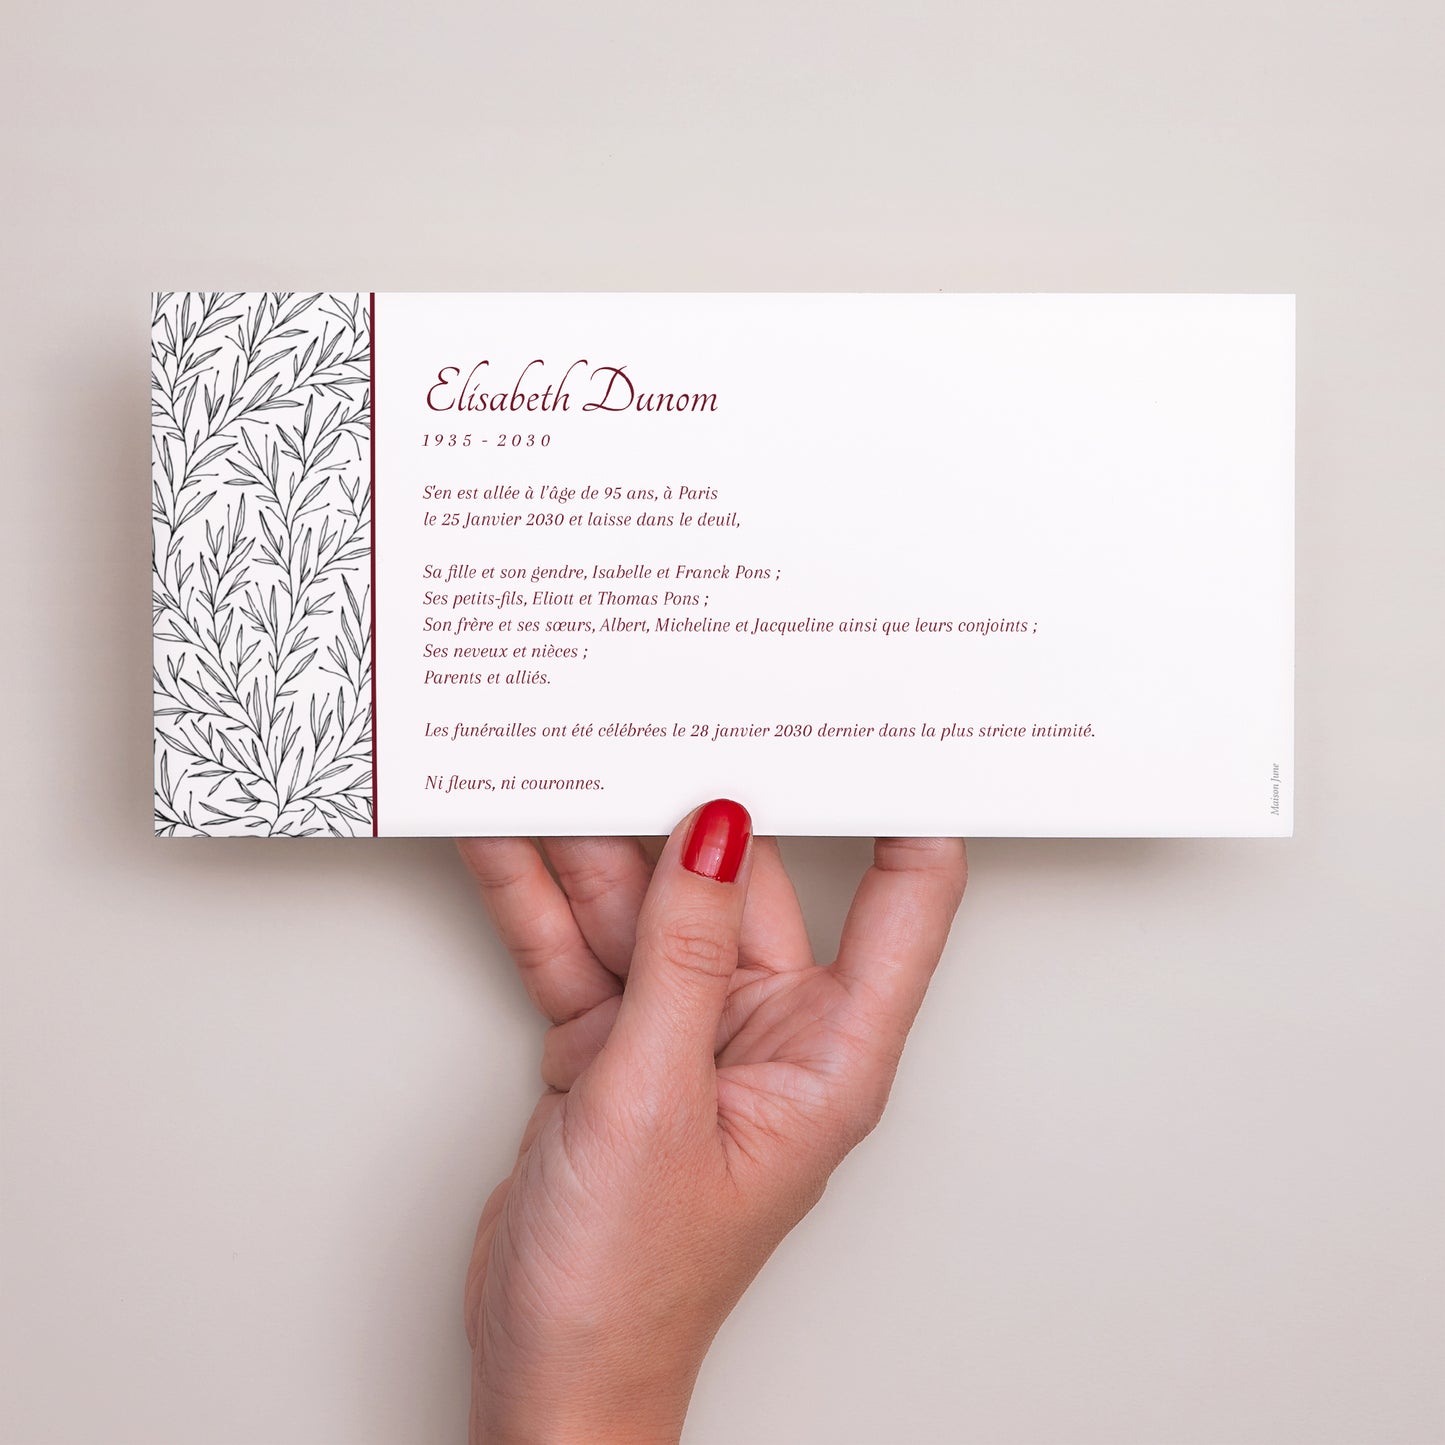 Elisabeth Dunom
1935 - 2030
S'en est allée à l'âge de 95 ans, à Paris
le 25 Janvier 2030 et laisse dans le deuil,
Sa fille et son gendre, Isabelle et Franck Pons ;
Ses petits-fils, Eliott et Thomas Pons ;
Son frère et ses sœurs, Albert, Micheline et Jacqueline ainsi que leurs conjoints ;
Ses neveux et nièces ;
Parents et alliés.
Les funérailles ont été célébrées le 28 janvier 2030 dernier dans la plus stricte intimité.
Ni fleurs, ni couronnes.
Maison June